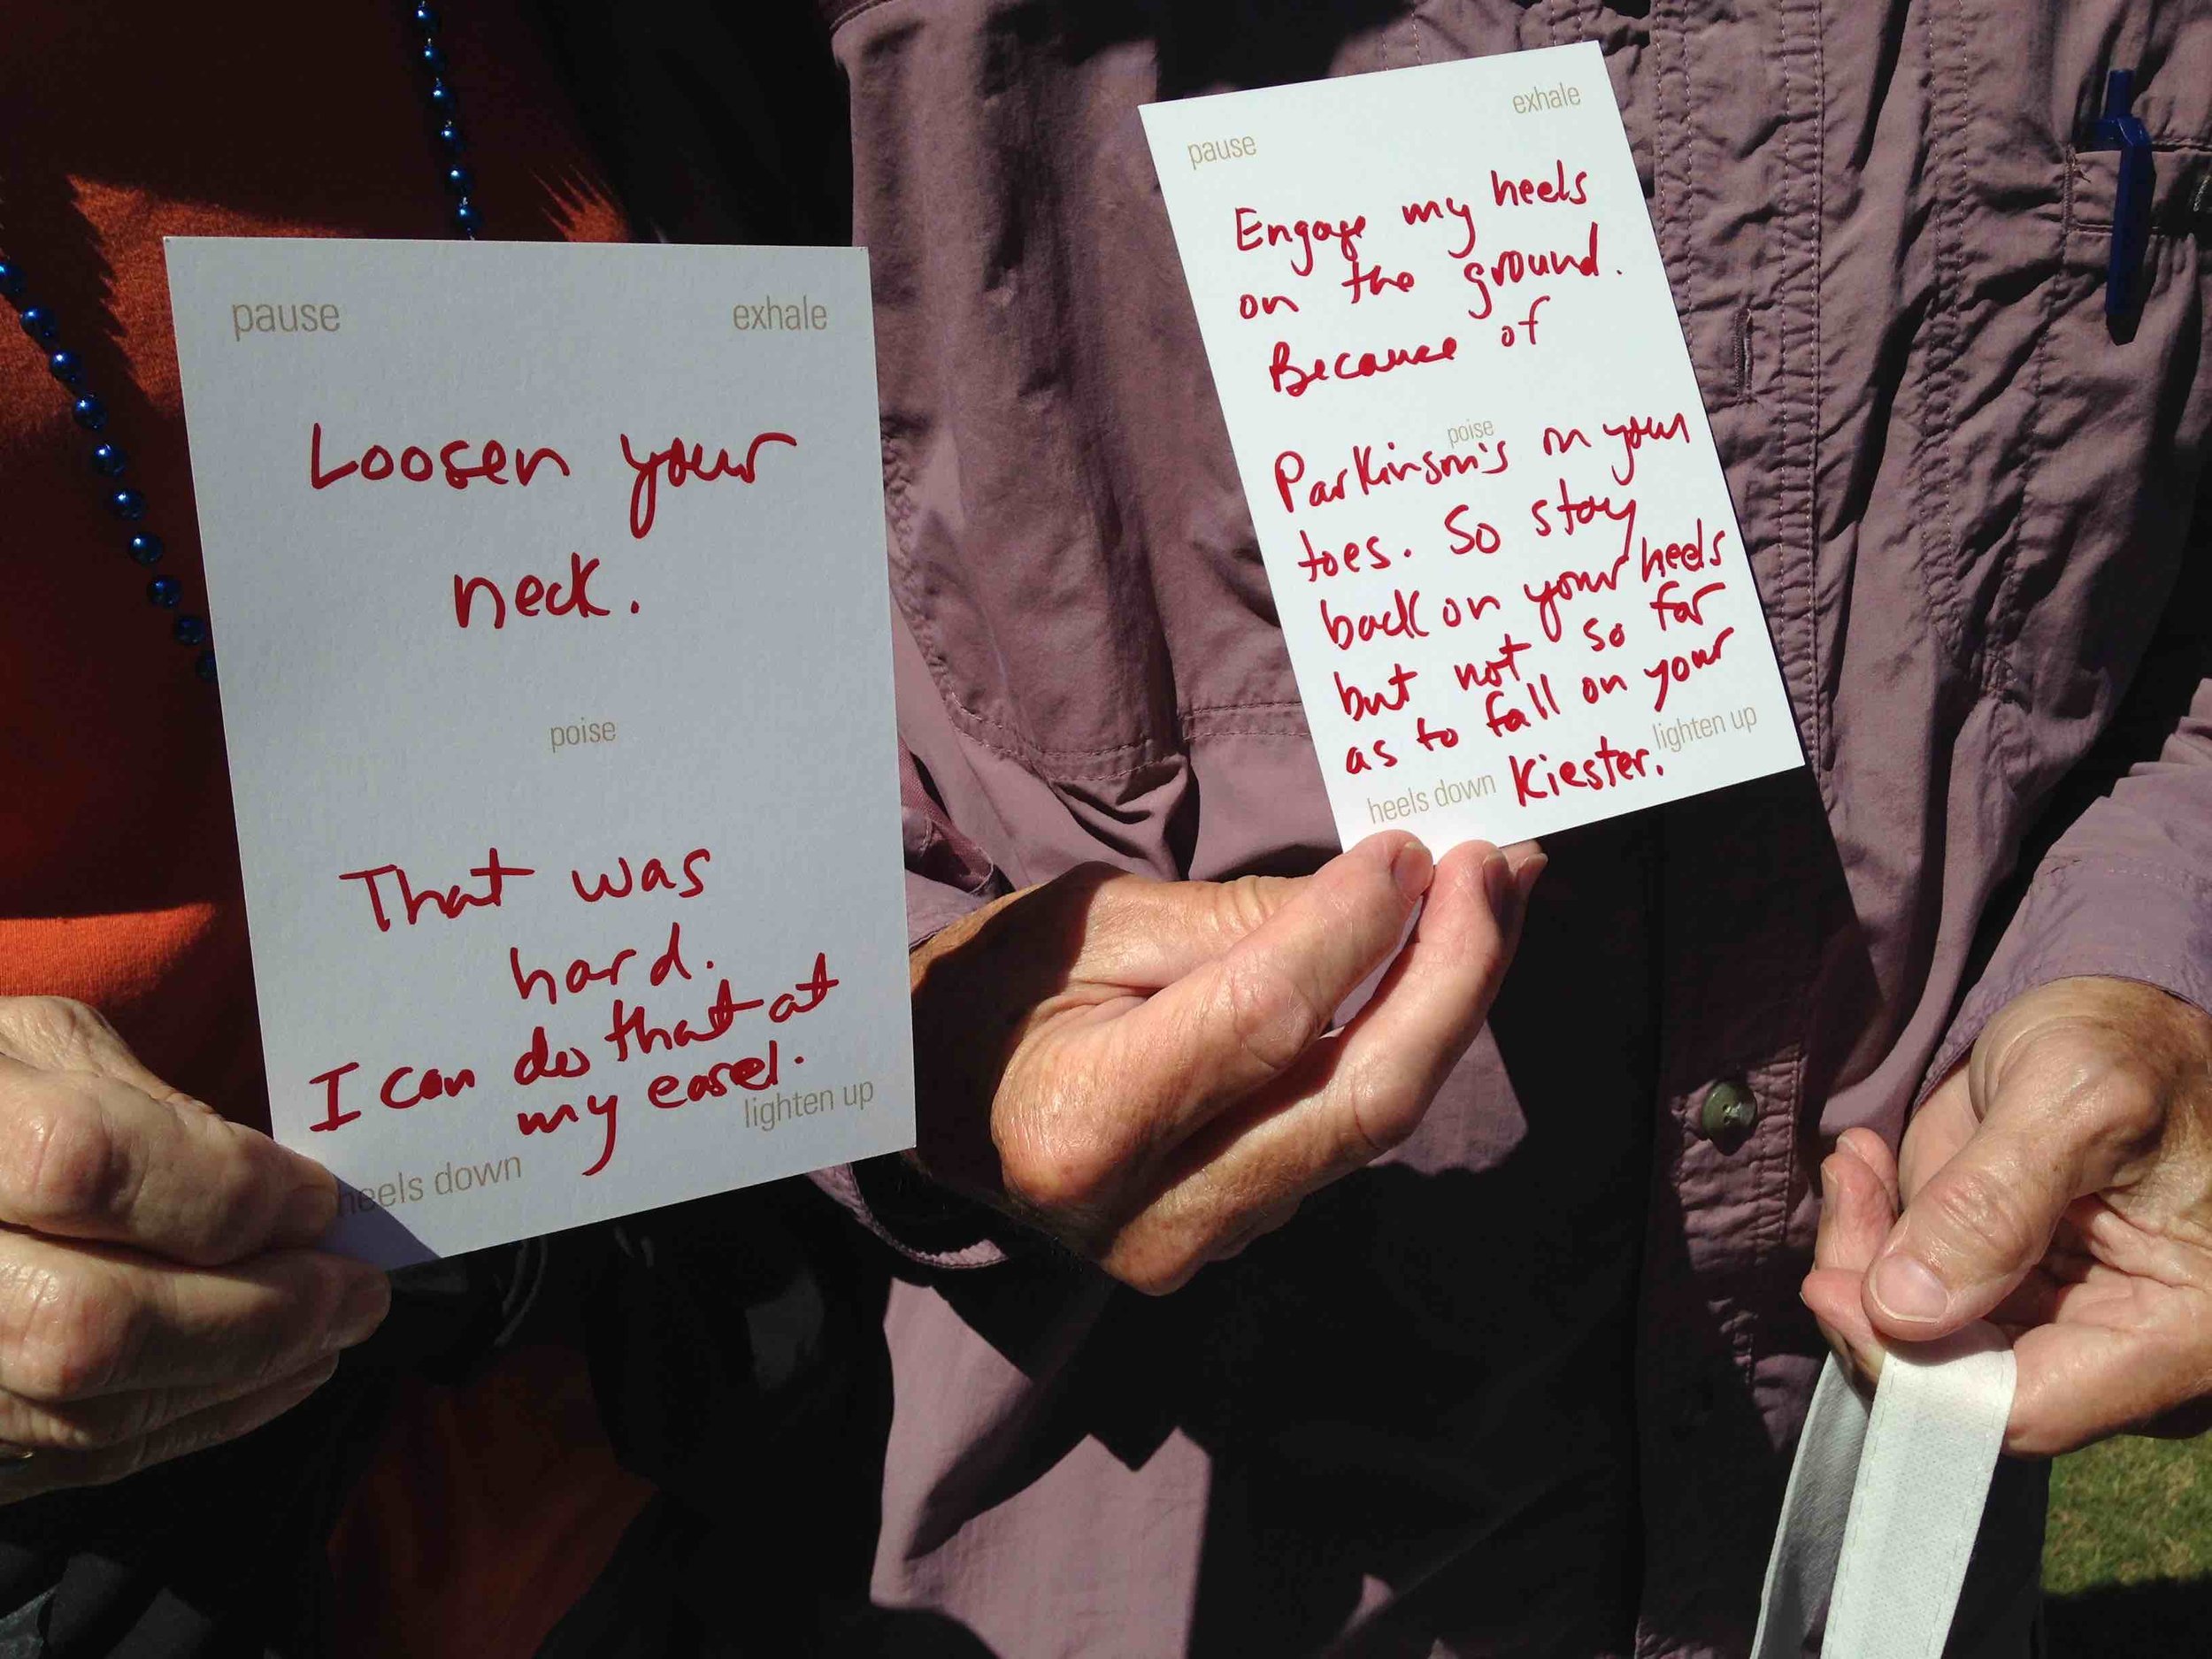 pause exhale
Loosen your
neck.
poise
That was
hard.
I can do that at
my easel.
lighten up
heels down
pause exhale
Engage my heels
on the ground.
Because of
poise
Parkinson's on your
toes. So stay
back on your heels
but not so far
as to fall on your
Kiester.
lighten up
heels down